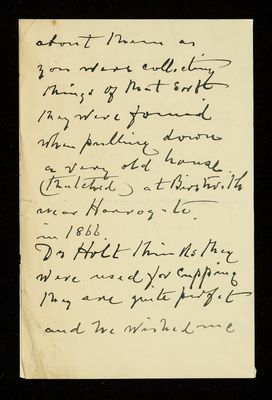 about them as
you were collecting
things of that sort
they were found
when pulling down
a very old house
(thatched) at Birstwith
near Harrogate.
in 1866
Dr Holt thinks they
were used for cupping
they are quite perfect
and he wished me